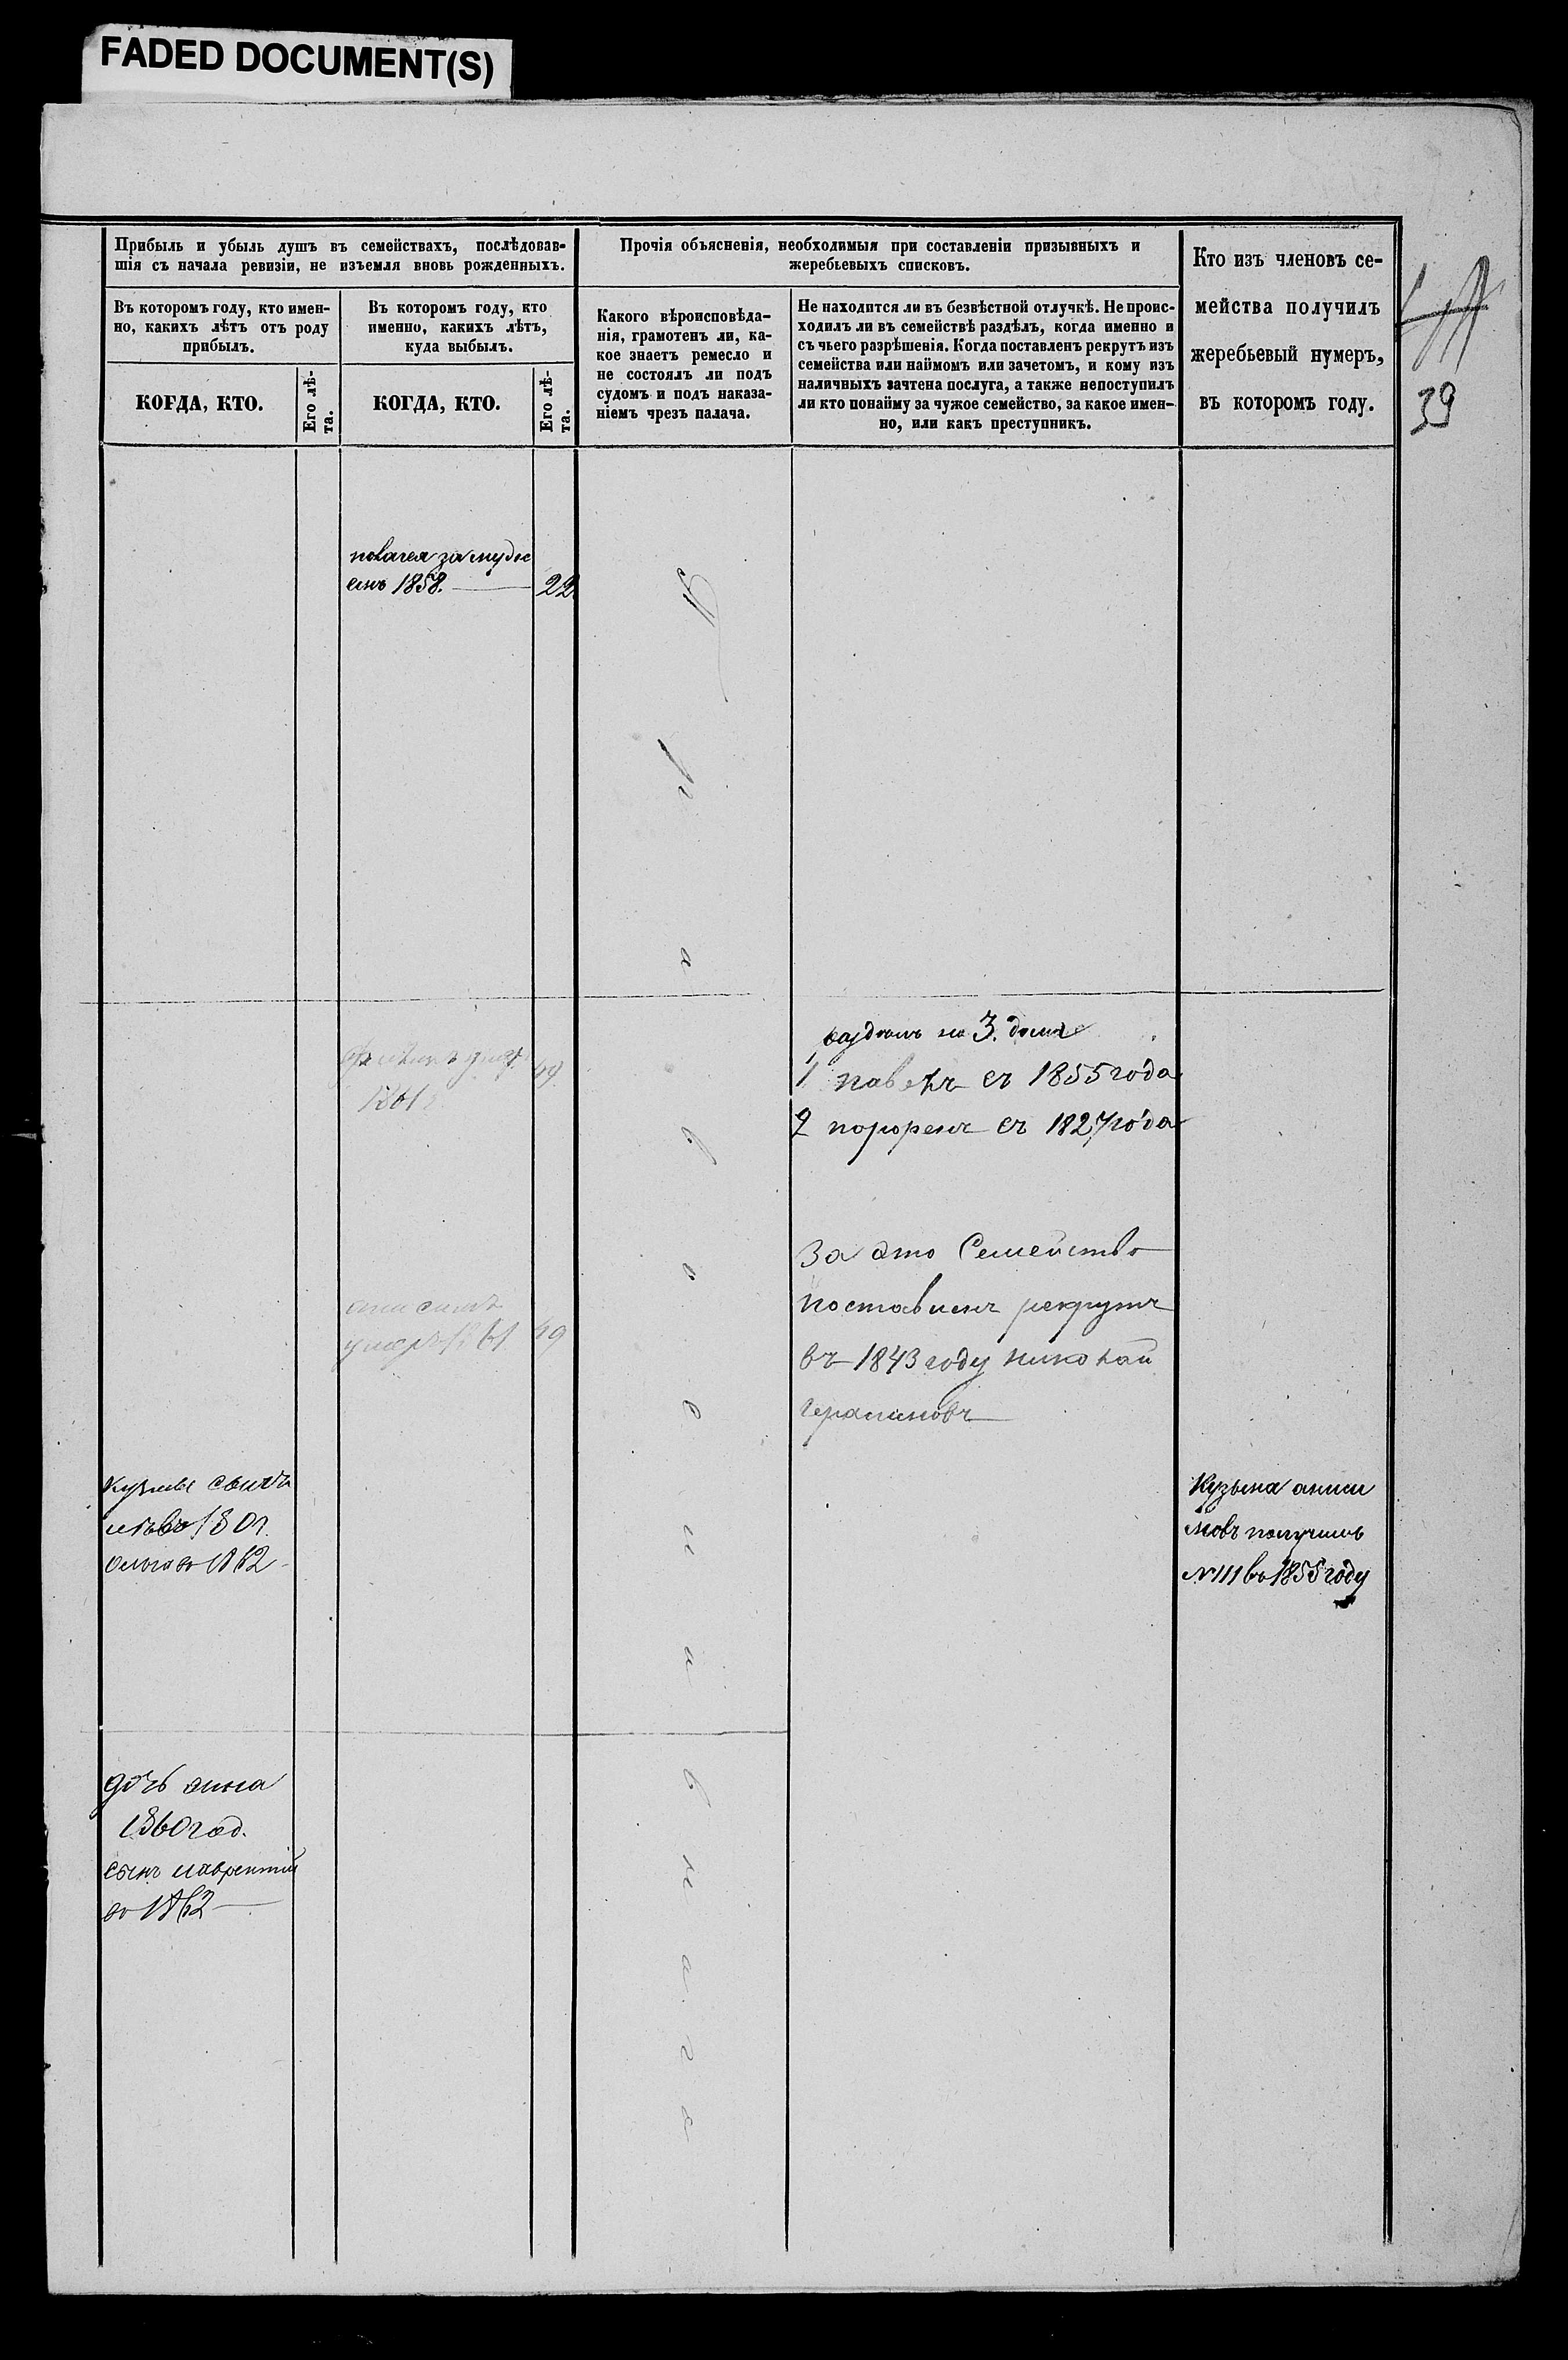 FADED DOCUMENT(S)
Прибыль и убыль душъ въ семействахъ, послѣдовав-
шія съ начала ревизіи, не изъемля вновь рожденныхъ.
Прочія объясненія, необходимыя при составленіи призывныхъ и
жеребьевыхъ списковъ.
Кто изъ членовъ се-
мейства получилъ
жеребьевый нумеръ,
въ которомъ году.
39
Въ которомъ году, кто имен-
но, какихъ лѣтъ отъ роду
прибылъ.
Въ которомъ году, кто
именно, какихъ лѣтъ,
куда выбылъ.
Какого вѣроисповѣда-
нія, грамотенъ ли, ка-
кое знаетъ ремесло и
не состоялъ ли подъ
судомъ и подъ наказа-
ніемъ чрезъ палача.
Не находится ли въ безвѣстной отлучкѣ. Не проис-
ходилъ ли въ семействѣ раздѣлъ, когда именно и
съ чьего разрѣшенія. Когда поставленъ рекрутъ изъ
семейства или наймомъ или зачетомъ, и кому изъ
наличныхъ зачтена послуга, а также непоступилъ
ли кто понайму за чужое семейство, за какое имен-
но, или какъ преступникъ.
КОГДА, КТО.
Его лѣ-
та.
КОГДА, КТО.
Его лѣ-
та.
1858. 22
П р а в о с л а в н а г о
на 3. дома
1 съ 1855 года
2 съ 1827 года
1861
За это Семейство
поставленъ рекрутъ
въ 1843 году николай
герасимовъ
анисимъ
умеръ 1861 49
Кузмы сынъ
1862
Кузьма аниси
мовъ получилъ
№ 111 въ 1855 году
дочь анна
1860 год.
сынъ лаврентий
1862